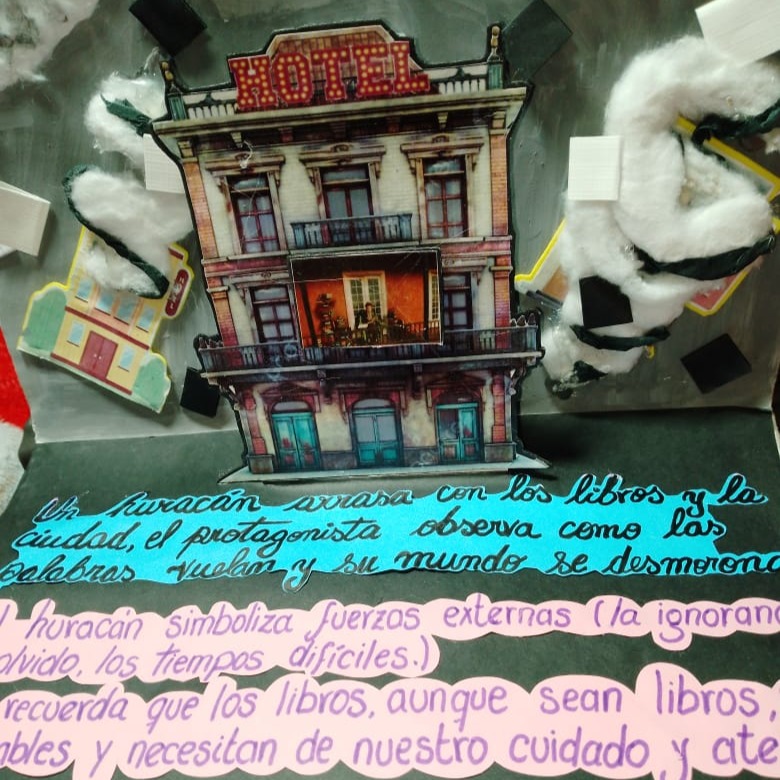 HOTEL
Un huracán arrasa con los libros y la
ciudad, el protagonista observa como las
palabras vuelan y su mundo se desmorona
l huracán simboliza fuerzas externas (la ignoran
olvido, los tiempos difíciles.)
recuerda que los libros, aunque sean libros,
bles y necesitan de nuestro cuidado y ate